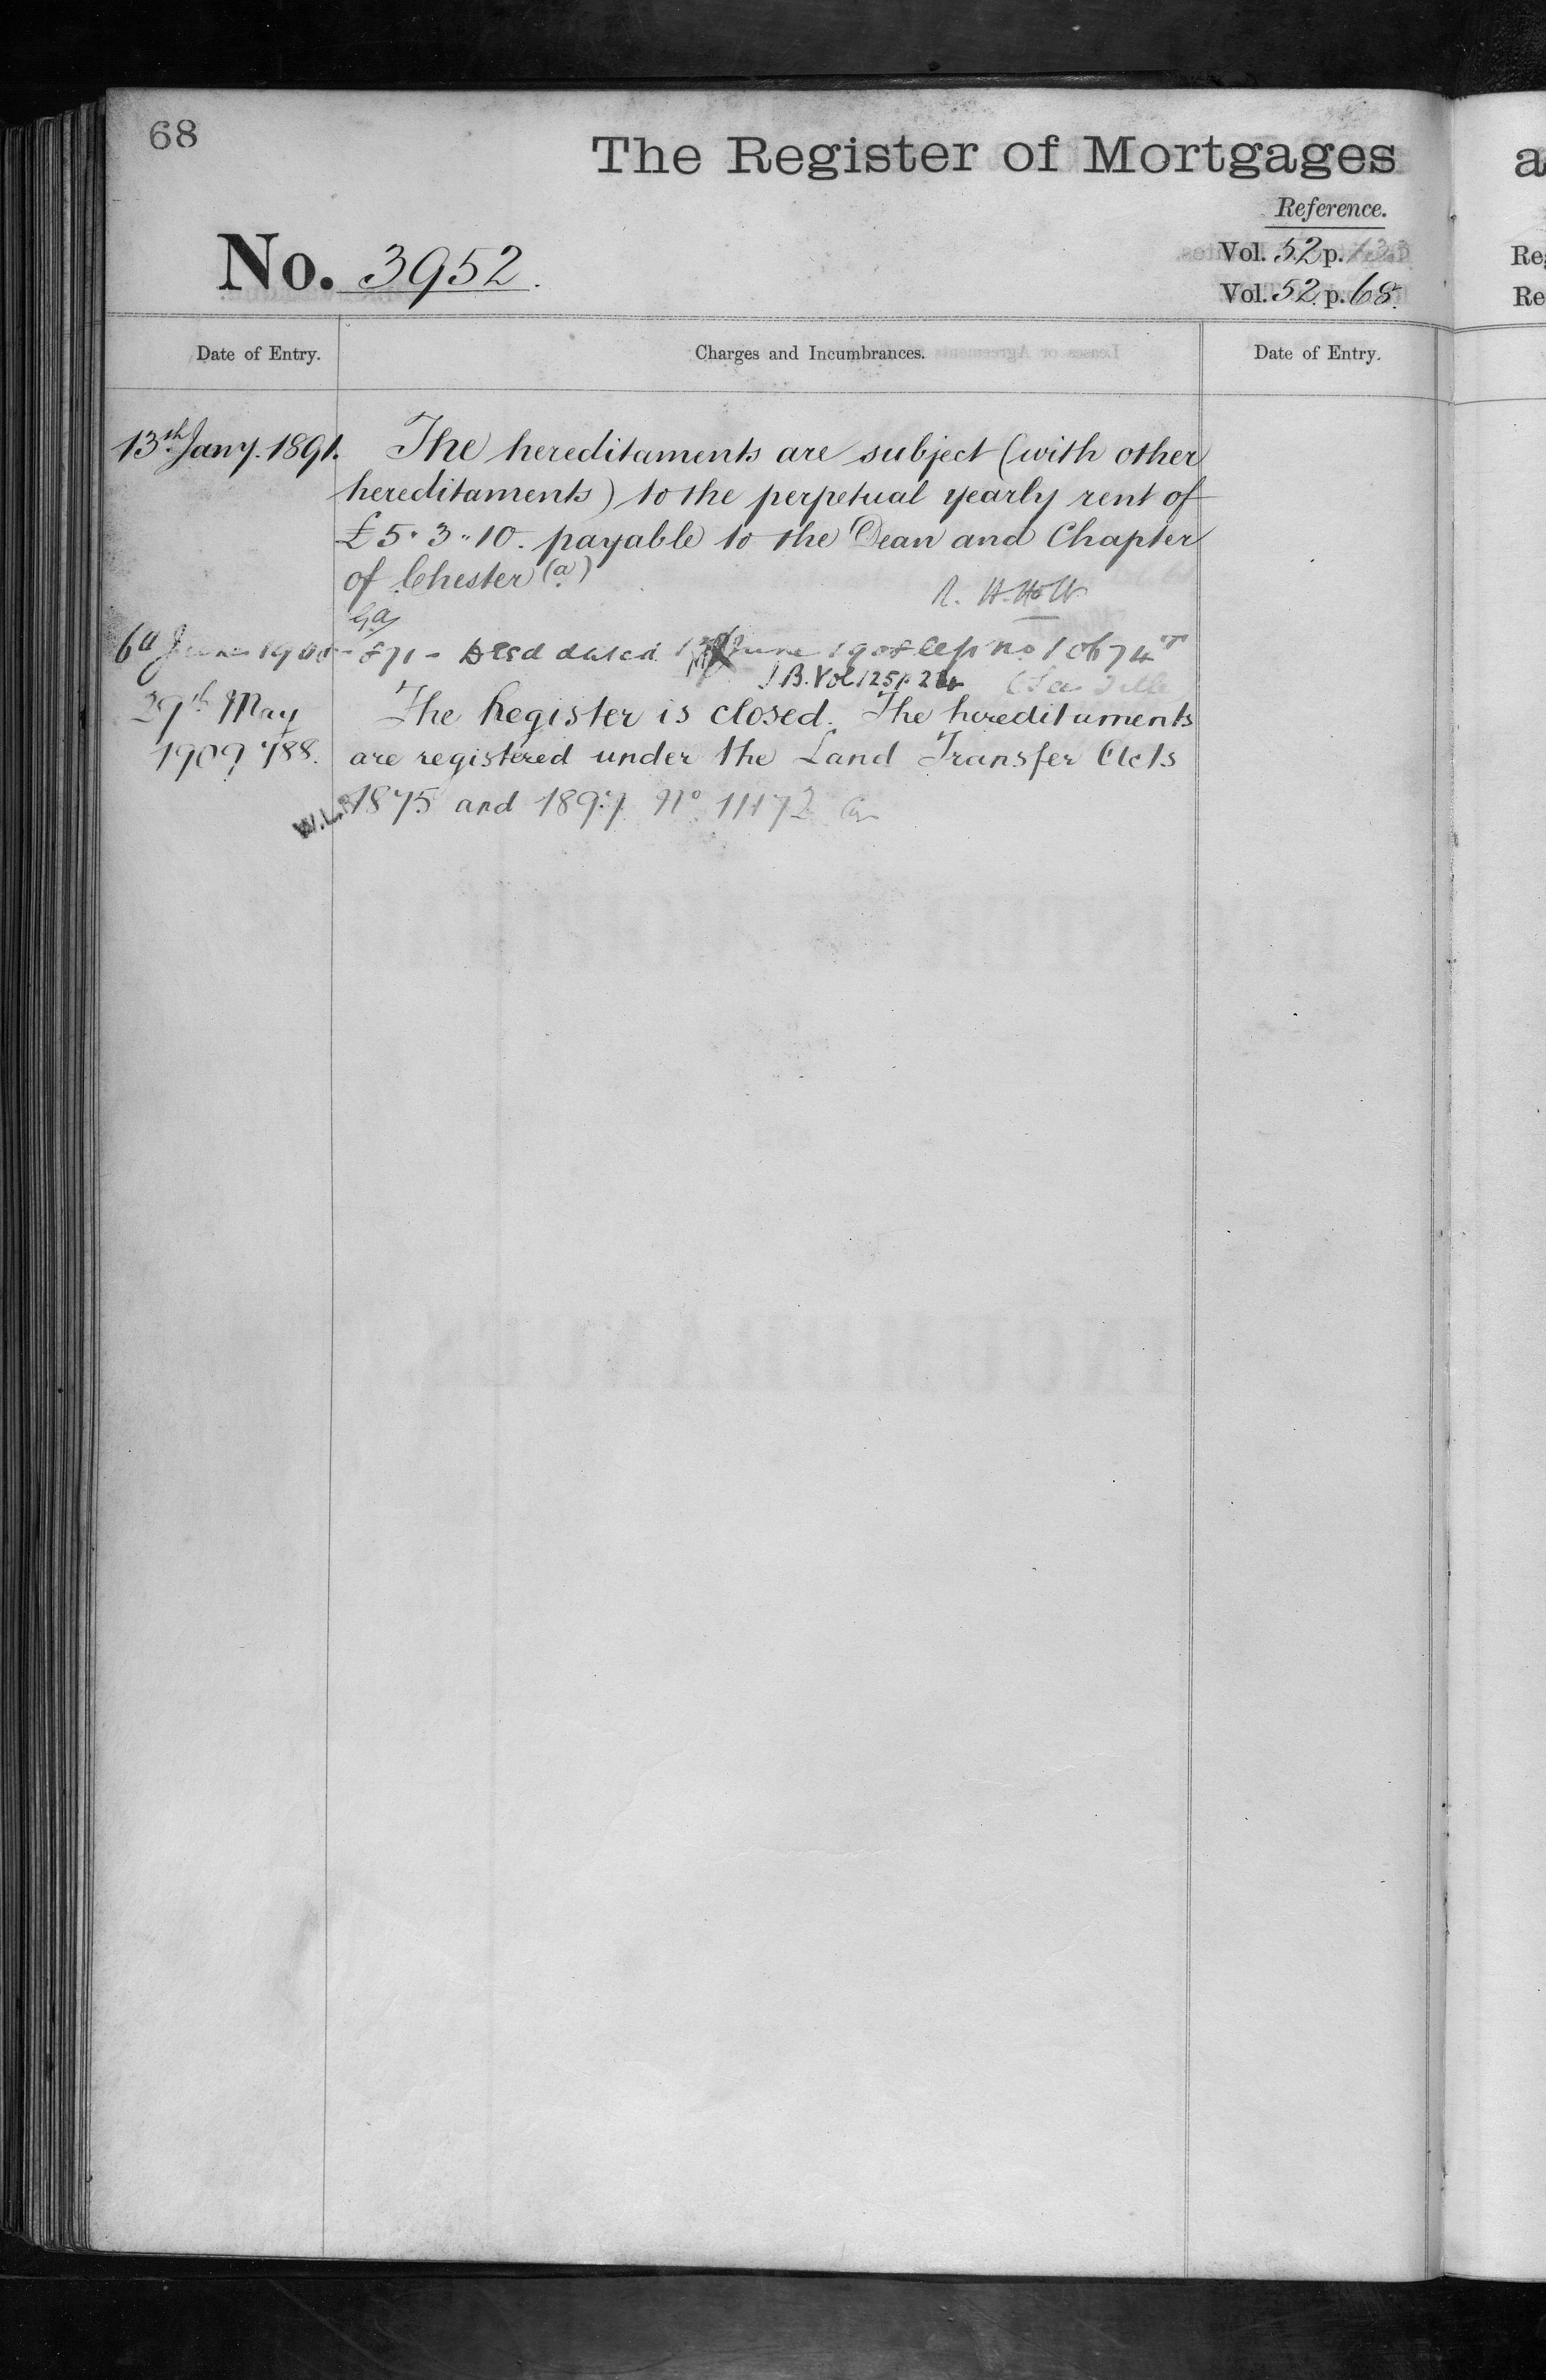 68
The Register of Mortgages
Reference.
No. 3952.
Vol. 52 p.
Vol. 52. p. 68.
Date of Entry.
Charges and Incumbrances.
Date of Entry.
13th Jany. 1891.
The hereditaments are subject (with other
hereditaments) to the perpetual yearly rent of
£5 " 3 " 10. payable to the Dean and Chapter
of Chester (a)
R. H. Holt
June £71 - Deed dated June
J.B. Vol 125 p.
29th May
1909 788.
The Register is closed. The hereditaments
are registered under the Land Transfer Acts
W.L.R. 1875 and 1897. No. 11172
a
Re
Re